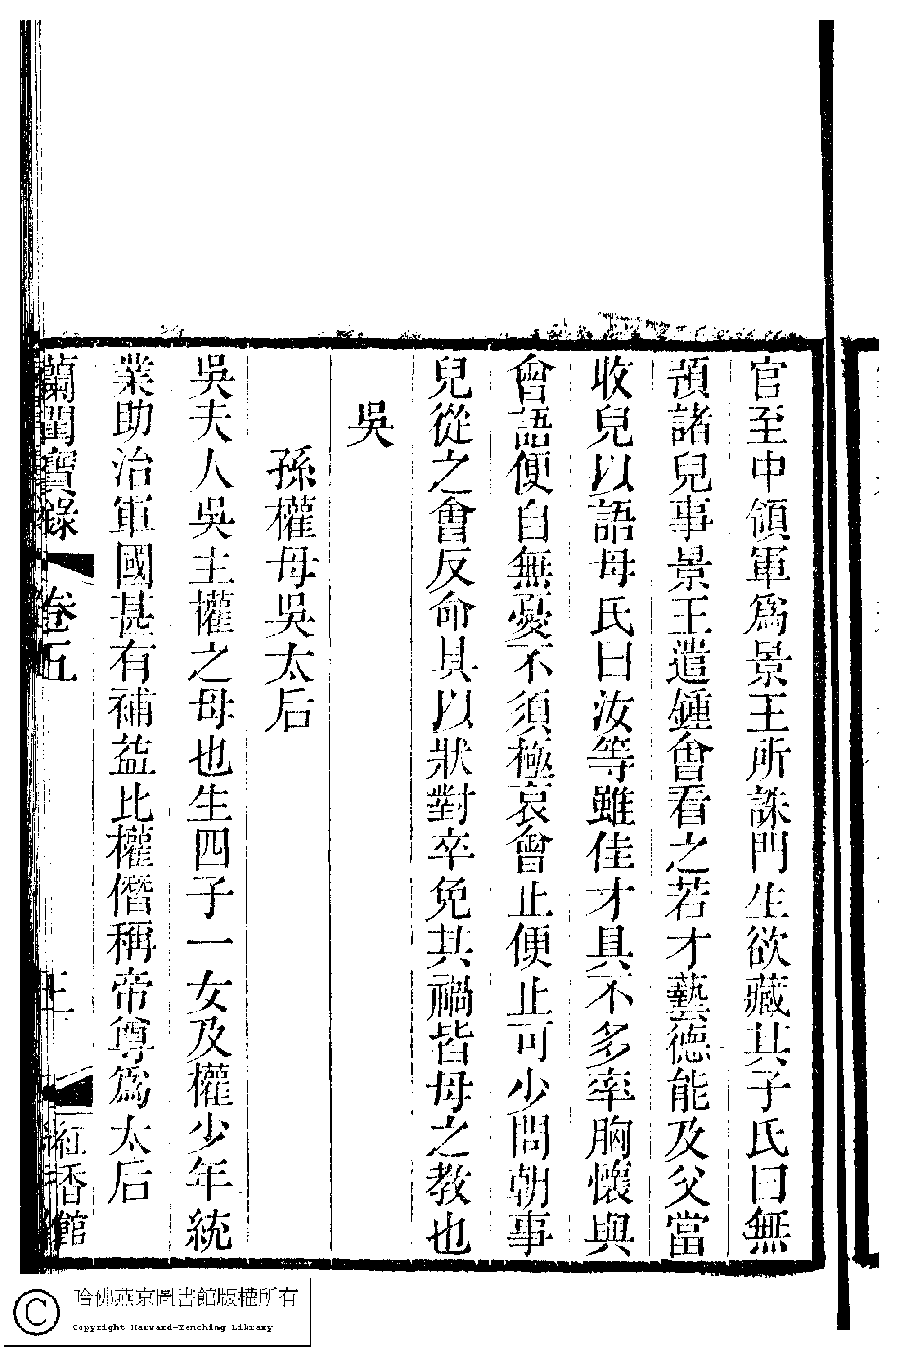 官至中領軍爲景王所誅門生欲藏其子氏曰無
預諸兒事景王遣鍾會看之若才藝德能及父當
收兒以語母氏曰汝等雖佳才具不多率胸懷與
會語便自無憂不須極哀會止便止可少問朝事
兒從之會反命具以狀對卒免其禍皆母之教也
吳
孫權母吳太后
吳夫人吳主權之母也生四子一女及權少年統
業助治軍國甚有補益比權僭稱帝尊爲太后
蘭閨寶錄
卷五
紅香館
哈佛燕京圖書館版權所有
Copyright Harvard-Yenching Library